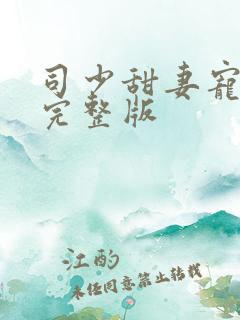 司少甜妻宠
完整版
江酌
未经同意禁止转载